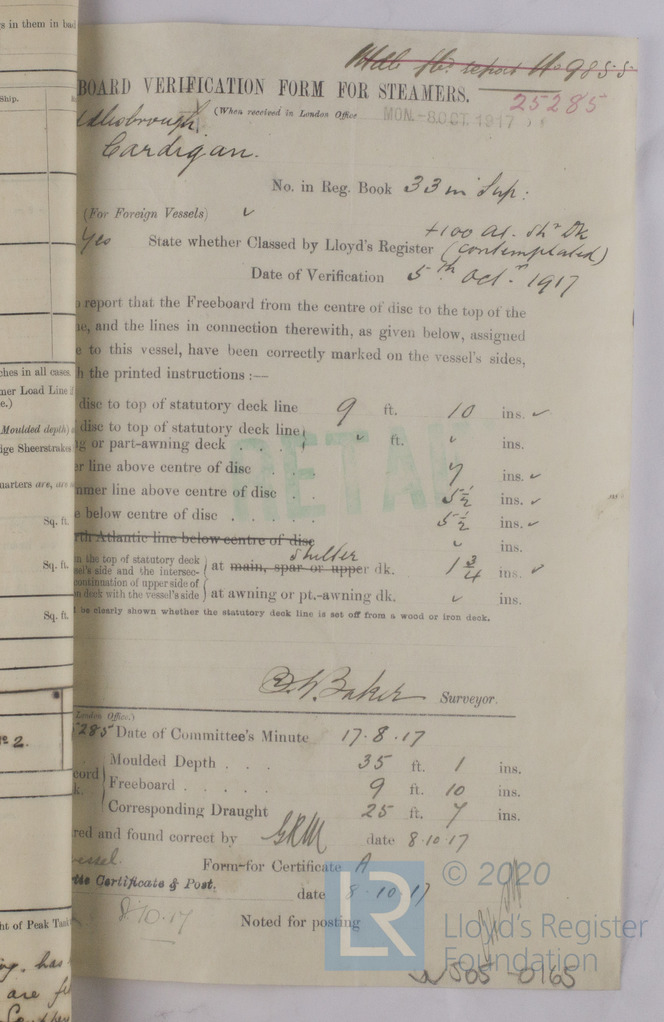 s in them in
Report No 985
BOARD VERIFICATION FORM FOR STEAMERS.
25285
(When received in London Office
MON - 8 OCT. 1917
Ship.
Cardigan.
No. in Reg. Book 33 in Sup:
(For Foreign Vessels) ✓
Yes State whether Classed by Lloyd's Register +100 A1. Sh^r Dk (contemplated)
Date of Verification 5th Oct. 1917
report that the Freeboard from the centre of disc to the top of the
and the lines in connection therewith, as given below, assigned
to this vessel, have been correctly marked on the vessel's sides,
the printed instructions :—
ches in all cases.
mer Load Line
e.)
disc to top of statutory deck line 9 ft. 10 ins. ✓
Moulded depth)
disc to top of statutory deck line
or part-awning deck . . . ✓ ft. ✓ ins.
ige Sheerstrakes
RETAI
line above centre of disc . . . 7 ins. ✓
uarters are, are
line above centre of disc . . . 5½ ins. ✓
below centre of disc . . . . . . 5½ ins. ✓
Sq. ft.
Atlantic line below centre of disc ✓ ins.
the top of statutory deck
side and the intersec-
continuation of upper side of
deck with the vessel's side
shelter
at main, spar or upper dk. 1¾ ins. ✓
at awning or pt.-awning dk. ✓ ins.
Sq. ft.
be clearly shown whether the statutory deck line is set off from a wood or iron deck.
Sq. ft.
Baker Surveyor.
London Office.)
285 Date of Committee's Minute 17.8.17
No 2.
Moulded Depth . . . 35 ft. 1 ins.
Freeboard . . . . . 9 ft. 10 ins.
Corresponding Draught 25 ft. 7 ins.
and found correct by GRM date 8.10.17
Form for Certificate A
Certificate & Post. date 8.10.17
8.10.17 Noted for posting
ht of Peak
has
are
LR
© 2020
Lloyd's Register
Foundation
W505-0165